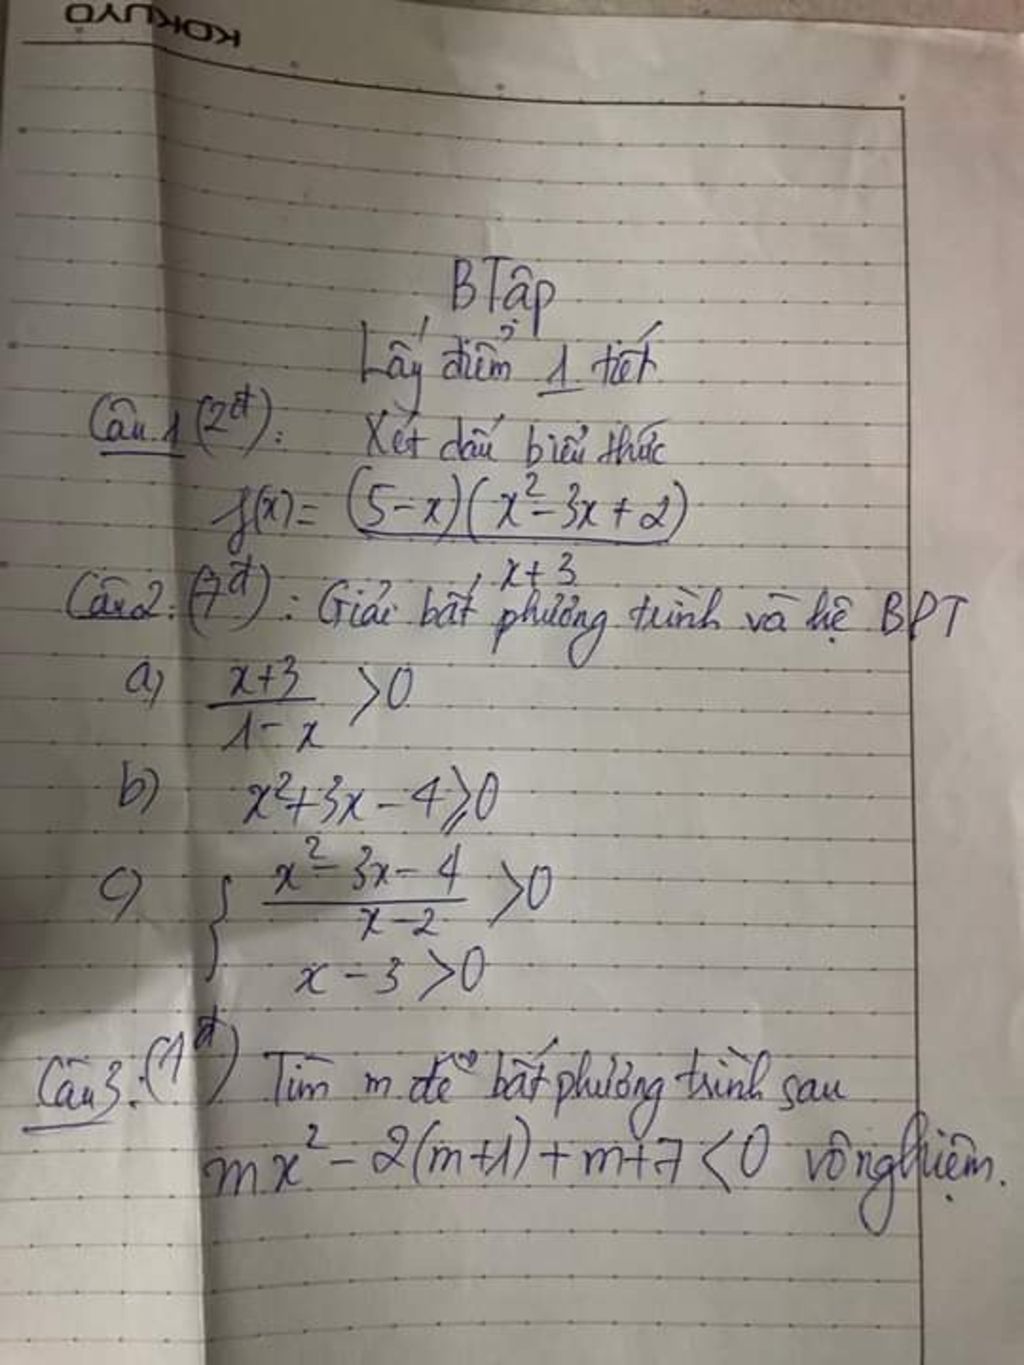 KOKUYO
BTập
Lấy điểm 1 tiết
Câu 1 (2đ): Xét dấu biểu thức
f(x) = (5-x)(x²-3x+2)
x+3
Câu 2: (7đ): Giải bất phương trình và hệ BPT
a) x+3 >0
1-x
b) x²+3x-4⩾0
c) { x²-3x-4 >0
x-2
x-3>0
Câu 3: (1đ) Tìm m để bất phương trình sau
mx²-2(m+1)+m+7<0 vô nghiệm.